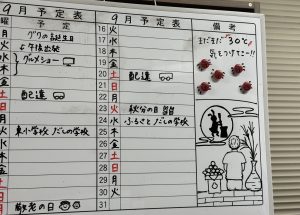 9月予定表
9月予定表
備考
予定
月 グリの誕生日
火 午後出発
水 グルメショー
木
金
土
日 配達
月
火
水
木 東小学校 だしの学校
金
土
日
月 敬老の日
16 火
17 水
18 木
19 金
20 土 配達
21 日
22 月
23 火 秋分の日
24 水 ふるさと だしの学校
25 木
26 金
27 土
28 日
29 月
30 火
31
まだまだ30℃
気をつけてー!!